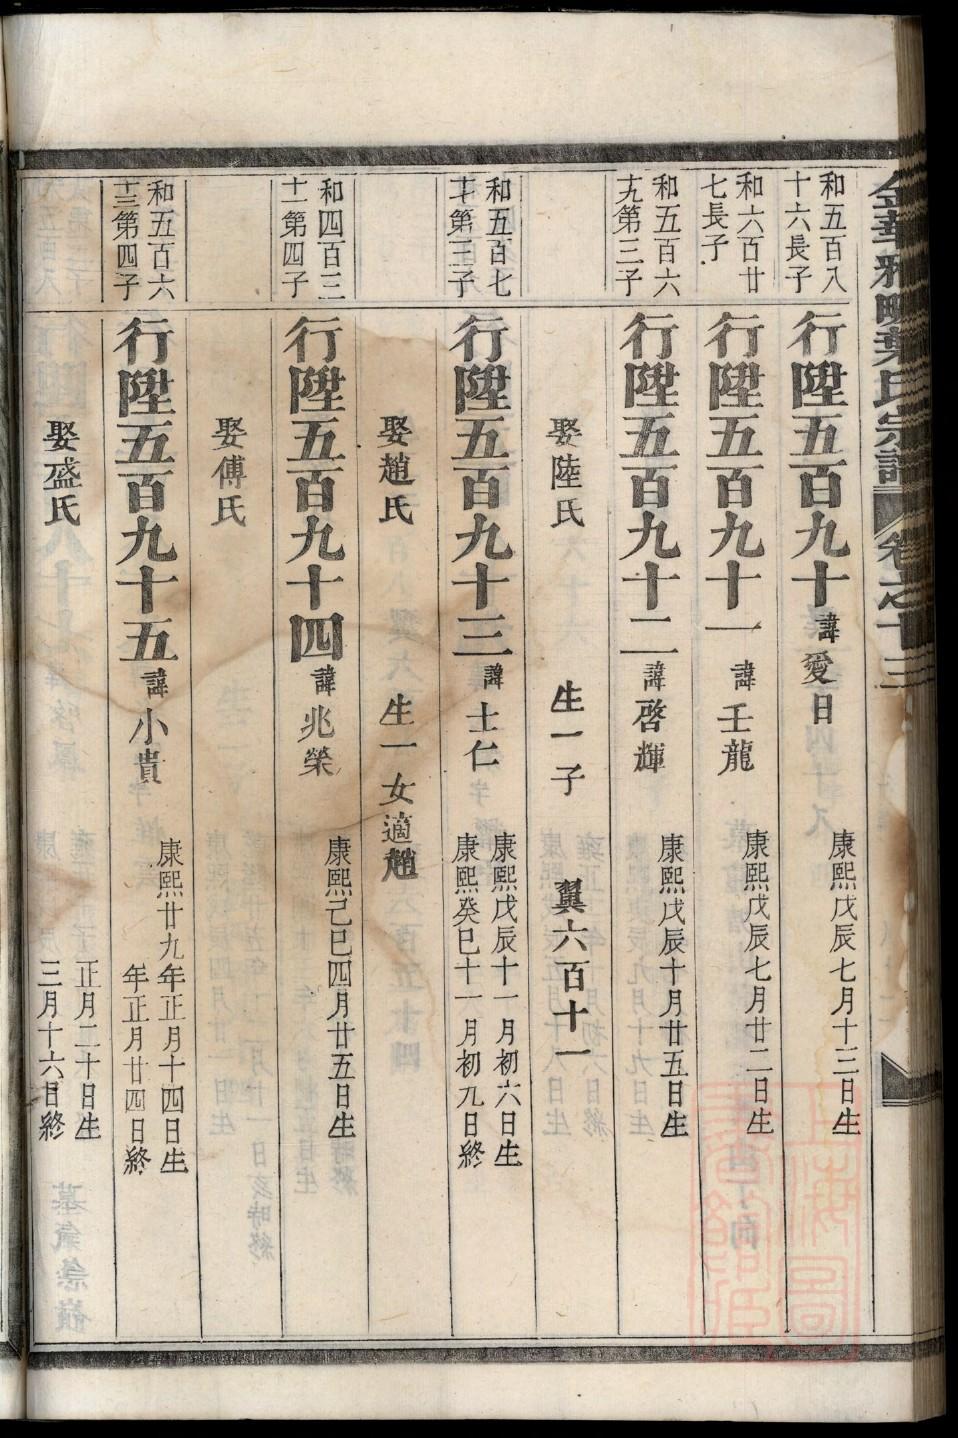 金華雅畈葉氏宗譜 卷之十三
和五百八
十六長子
行陞五百九十 諱愛日 康熙戊辰七月十三日生
和六百廿
七長子
行陞五百九十一 諱壬龍 康熙戊辰七月廿二日生
和五百六
十九第三子
行陞五百九十二 諱啓輝 康熙戊辰十月廿五日生
娶陸氏 生一子 翼六百十一
和五百七
十第三子
行陞五百九十三 諱士仁 康熙戊辰十一月初六日生
康熙癸巳十一月初九日終
娶趙氏 生一女適趙
和四百三
十一第四子
行陞五百九十四 諱兆榮 康熙己巳四月廿五日生
娶傅氏
和五百六
十三第四子
行陞五百九十五 諱小貴 康熙廿九年正月十四日生
年正月廿四日終
娶盛氏 正月二十日生
三月十六日終